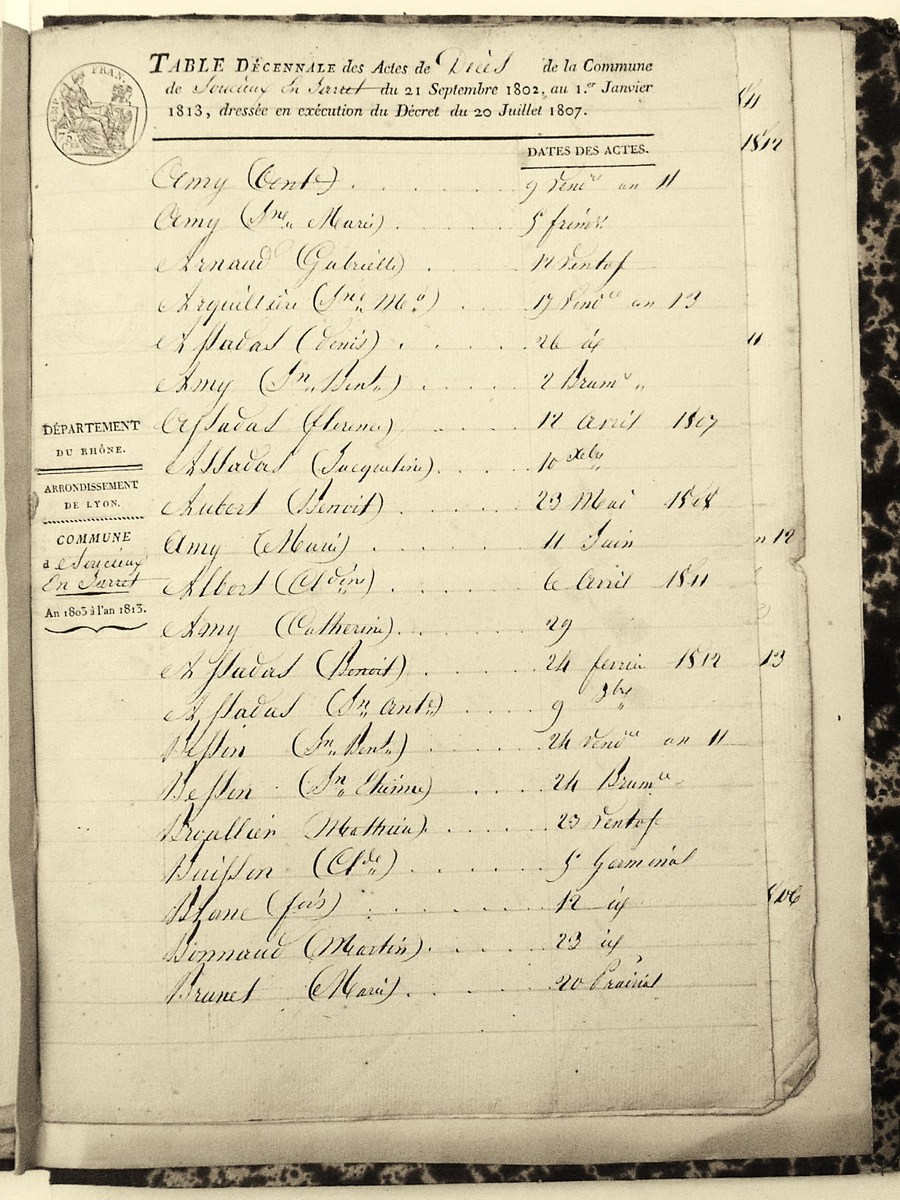 TABLE DÉCENNALE des Actes de Décès de la Commune
de Soucieux En Jarret du 21 Septembre 1802, au 1.er Janvier
1813, dressée en exécution du Décret du 20 Juillet 1807.
DATES DES ACTES.
Amy (Ante) 9 Vendre an 11
Amy (Jne Marie) 5 frimre
Arnaud (Gabrielle) 12 Ventose
Arquillière (Jne Mie) 17 Vendre an 13
Assadas (Denis) 26 id
Amy (Jn Bent) 2 Brumre "
Assadas (florence) 12 avril 1807
Assadas (Jacqueline) 10 Xbre
Aubert (Benoit) 23 Mai 1808
Amy (Marie) 11 Juin
Albert (Cldine) 6 Avril 1811
Amy (Catherine) 29
Assadas (Benoit) 24 fevrier 1812
Assadas (Jn Ante) 9
Besson (Jn Bent) 24 Vendre an 11
Besson (Jn Etienne) 24 Brumre
Broallier (Mathieu) 23 Ventose
Buisson (Clde) 5 Germinal
Blanc (fois) 12 id
Bonnaud (Martin) 23 id
Brunet (Marie) 20 Prairial
DÉPARTEMENT
DU RHÔNE.
ARRONDISSEMENT
DE LYON.
COMMUNE
de Soucieux
En Jarret
An 1803 à l'an 1813.
1812
12
13